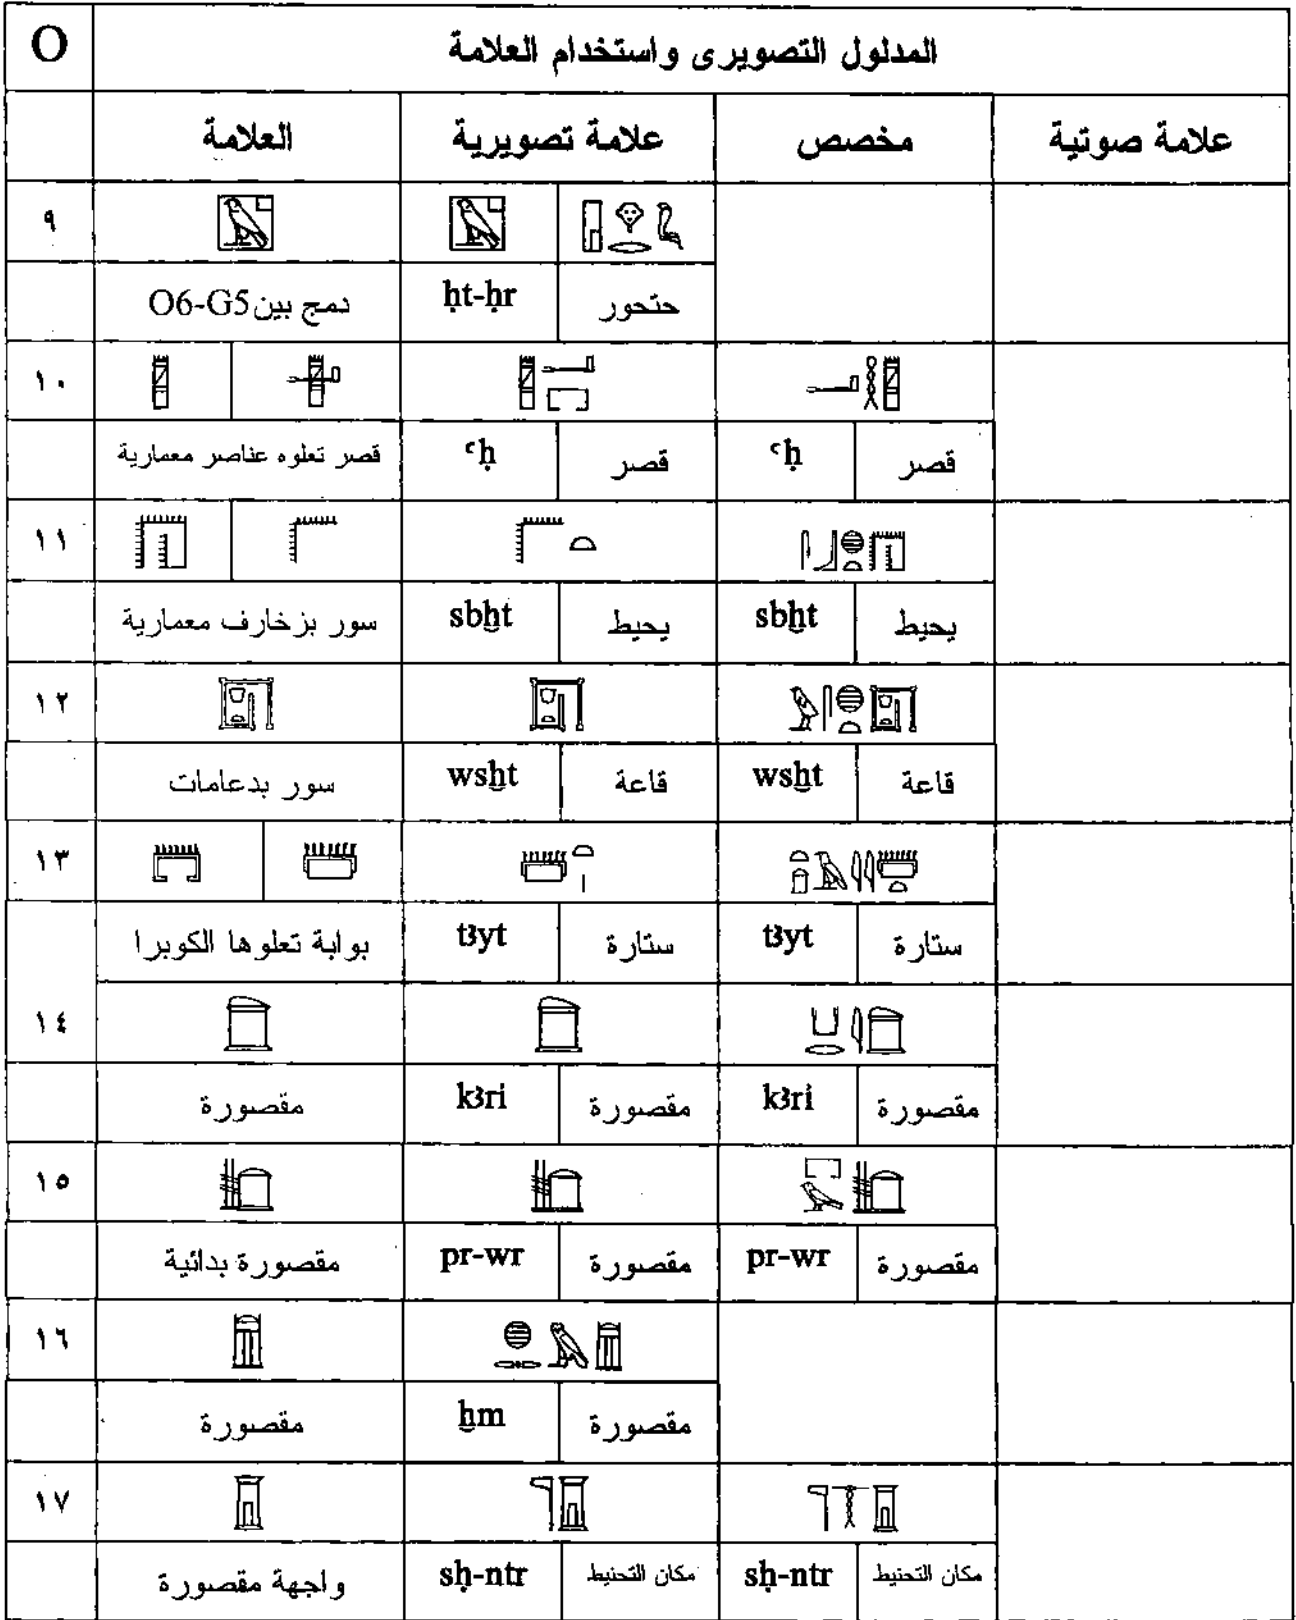 O المدلول التصويرى واستخدام العلامة
العلامة علامة تصويرية مخصص علامة صوتية
٩
دمج بين O6-G5 ḥt-ḥr حتحور
١٠
قصر تعلوه عناصر معمارية ꜥḥ قصر ꜥḥ قصر
١١
سور بزخارف معمارية sbḫt يحيط sbḫt يحيط
١٢
سور بدعامات wsḫt قاعة wsḫt قاعة
١٣
بوابة تعلوها الكوبرا tꜣyt ستارة tꜣyt ستارة
١٤
مقصورة kꜣri مقصورة kꜣri مقصورة
١٥
مقصورة بدائية pr-wr مقصورة pr-wr مقصورة
١٦
مقصورة ḫm مقصورة
١٧
واجهة مقصورة sḥ-ntr مكان التحنيط sḥ-ntr مكان التحنيط